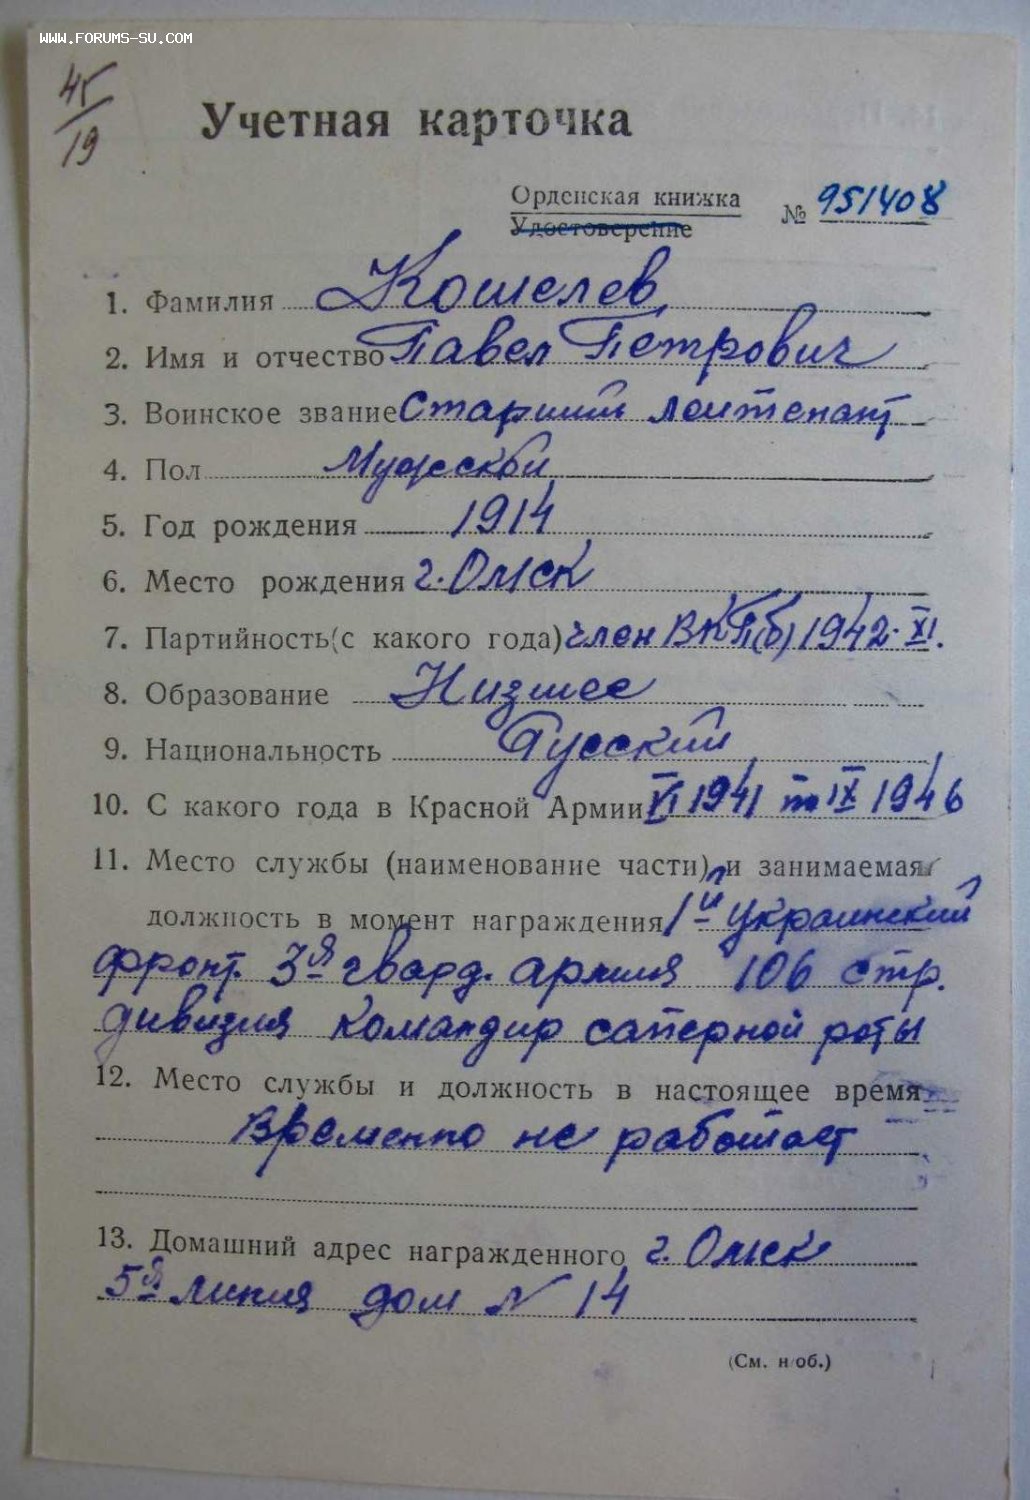 WWW.FORUMS-SU.COM
45/19
Учетная карточка
Орденская книжка
Удостоверение
№ 951408
1. Фамилия Кошелев
2. Имя и отчество Павел Петрович
3. Воинское звание Старший лейтенант
4. Пол Мужской
5. Год рождения 1914
6. Место рождения г. Омск
7. Партийность (с какого года) член ВКП(б) 1942. XI.
8. Образование Низшее
9. Национальность Русский
10. С какого года в Красной Армии VI 1941 по IX 1946
11. Место службы (наименование части) и занимаемая
должность в момент награждения 1й Украинский
фронт. 3я гвард. армия 106 стр.
дивизия командир саперной роты
12. Место службы и должность в настоящее время
Временно не работает
13. Домашний адрес награжденного г. Омск
5я линия дом N 14
(См. н/об.)